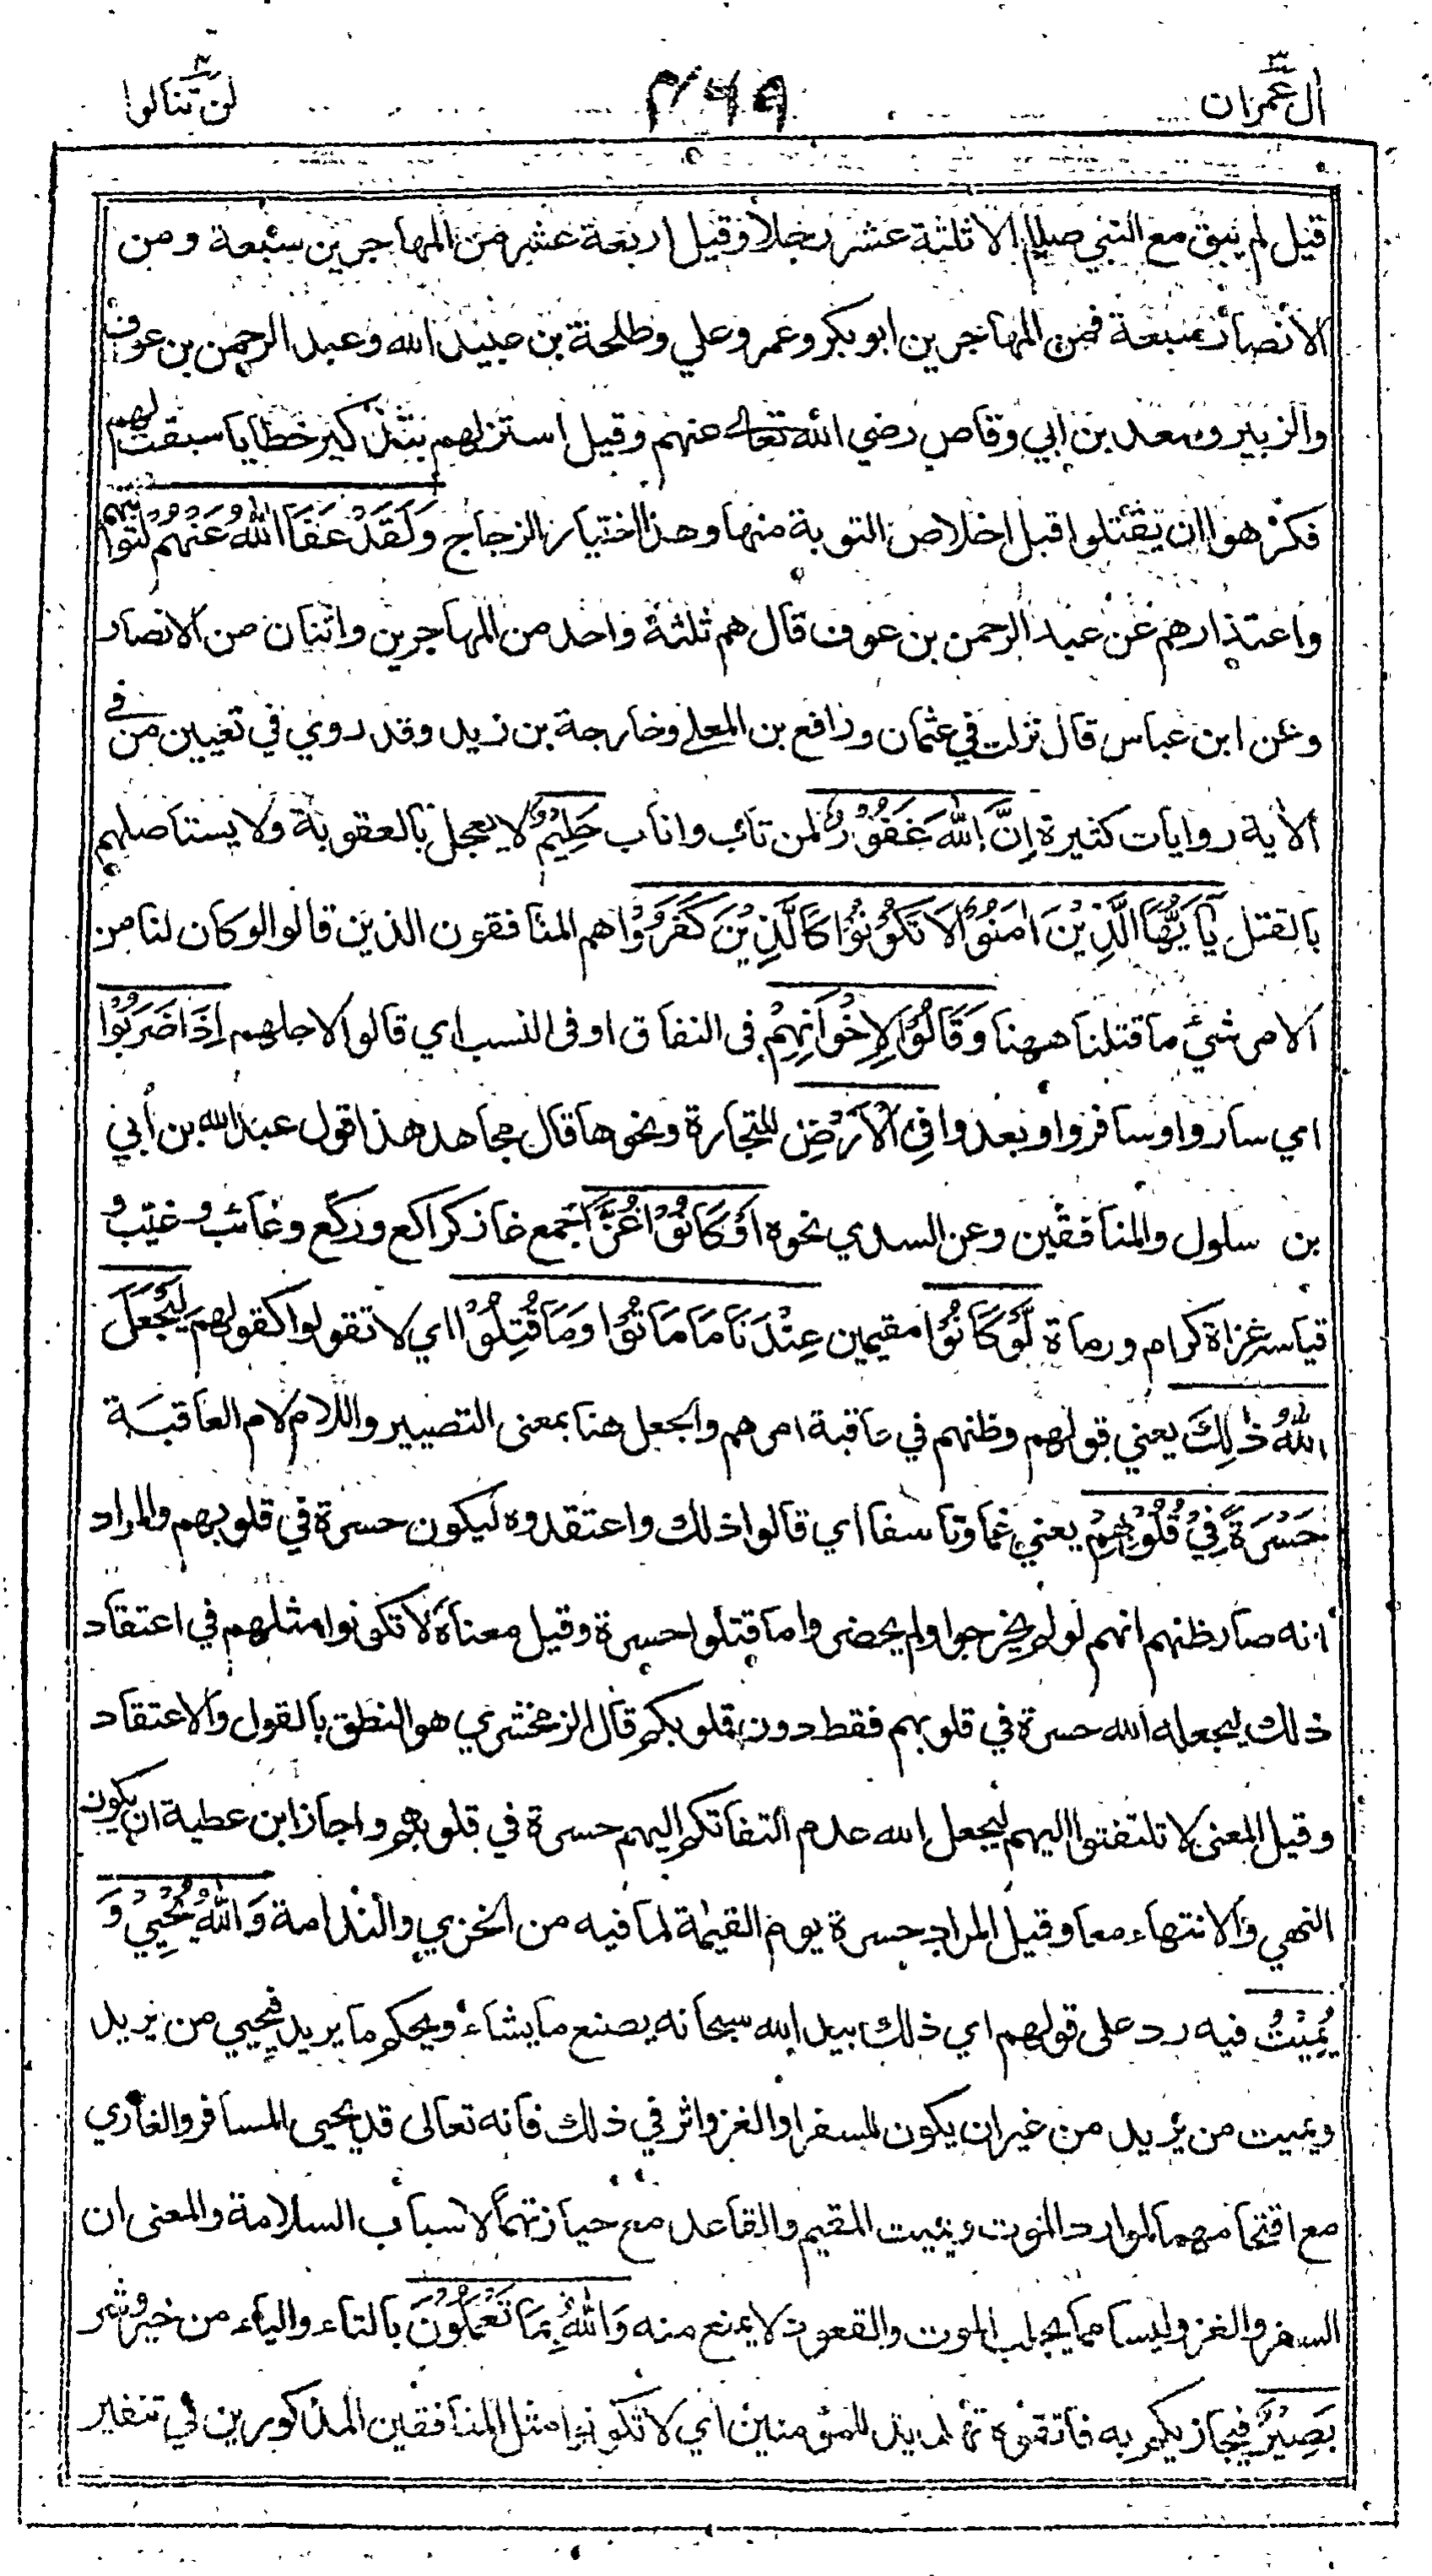 اٰل عمران ٣
٢٦٩
لن تنالوا ٤
قيل لم يبق مع النبي صللم الا ثلثة عشر رجلا وقيل اربعة عشر من المهاجرين سبعة ومن
الانصار سبعة فمن المهاجرين ابو بكر وعمر وعلي وطلحة بن عبيد الله وعبد الرحمن بن عوف
والزبير وسعد بن ابي وقاص رضي الله تعالى عنهم وقيل استزلهم بتذكير خطايا سبقت لهم
فكرهوا ان يقتلوا قبل اخلاص التوبة منها وهذا اختيار الزجاج وَلَقَدْ عَفَا اللهُ عَنْهُمْ لتوبتهم
واعتذارهم عن عبد الرحمن بن عوف قال هم ثلثة واحد من المهاجرين واثنان من الانصار
وعن ابن عباس قال نزلت في عثمان ورافع بن المعلى وخارجة بن زيد وقد روي في تعيين من في
الاية روايات كثيرة اِنَّ اللهَ غَفُوْرٌ لمن تاب واناب حَلِيْمٌ لا يعجل بالعقوبة ولا يستاصلهم
بالقتل يٰٓاَيُّهَا الَّذِيْنَ اٰمَنُوْا لَا تَكُوْنُوْا كَالَّذِيْنَ كَفَرُوْا هم المنافقون الذين قالوا لو كان لنا من
الامر شيء ما قتلنا ههنا وَقَالُوْا لِاِخْوَانِهِمْ في النفاق او في النسب اي قالوا لاجلهم اِذَا ضَرَبُوْا
اي ساروا وسافروا وبعدوا فِي الْاَرْضِ للتجارة ونحوها قال مجاهد هذا قول عبد الله بن أبي
بن سلول والمنافقين وعن السدي نحوه اَوْ كَانُوْا غُزًّى جمع غاز كراكع وركع وغائب وغيّب و
قياسه غزاة كرام ورماة لَوْ كَانُوْا مقيمين عِنْدَنَا مَا مَاتُوْا وَمَا قُتِلُوْا اي لا تقولوا كقولهم لِيَجْعَلَ
اللهُ ذٰلِكَ يعني قولهم وظنهم في عاقبة امرهم والجعل هنا بمعنى التصيير واللام لام العاقبة
حَسْرَةً فِيْ قُلُوْبِهِمْ يعني غما وتاسفا اي قالوا ذلك واعتقدوه ليكون حسرة في قلوبهم والمراد
انه صار ظنهم انهم لو لم يخرجوا ولم يحضروا ما قتلوا حسرة وقيل معناه لا تكونوا مثلهم في اعتقاد
ذلك ليجعله الله حسرة في قلوبهم فقط دون قلوبكم قال الزمخشري هو النطق بالقول والاعتقاد
وقيل المعنى لا تلتفتوا اليهم ليجعل الله عدم التفاتكم اليهم حسرة في قلوبهم واجاز ابن عطية ان يكون
النهي والانتهاء معا وقيل المراد حسرة يوم القيمة لما فيه من الخزي والندامة وَاللهُ يُحْيِيْ وَ
يُمِيْتُ فيه رد على قولهم اي ذلك بيد الله سبحانه يصنع ما يشاء ويحكم ما يريد فيحيي من يريد
ويميت من يريد من غير ان يكون للسفر او الغزو اثر في ذلك فانه تعالى قد يحيى المسافر والغازي
مع اقتحامهما لموارد الموت ويميت المقيم والقاعد مع حيازتهما لاسباب السلامة والمعنى ان
السفر والغزو ليسا مما يجلب الموت والقعود لا يمنع منه وَاللهُ بِمَا تَعْمَلُوْنَ بالتاء والياء من خير وشر
بَصِيْرٌ فيجازيكم به فاتقوه تهديد للمؤمنين اي لا تكونوا مثل المنافقين المذكورين في تنفير